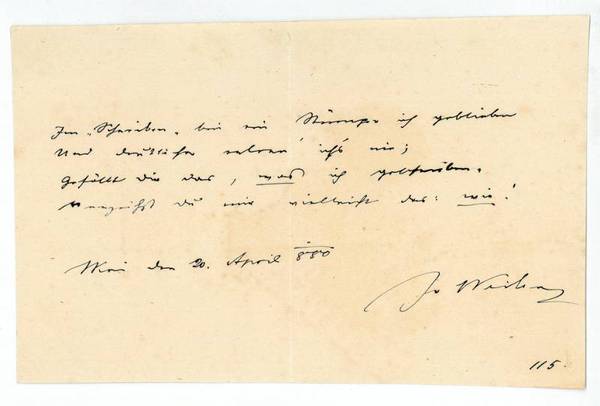 Im „Schreiben“ bin ein Stümper ich geblieben
Und deutlicher ich's nie;
Gefällt Dir das, was ich geschrieben,
Verzeihst Du mir vielleicht das: wie!
den 20. April 880
115.